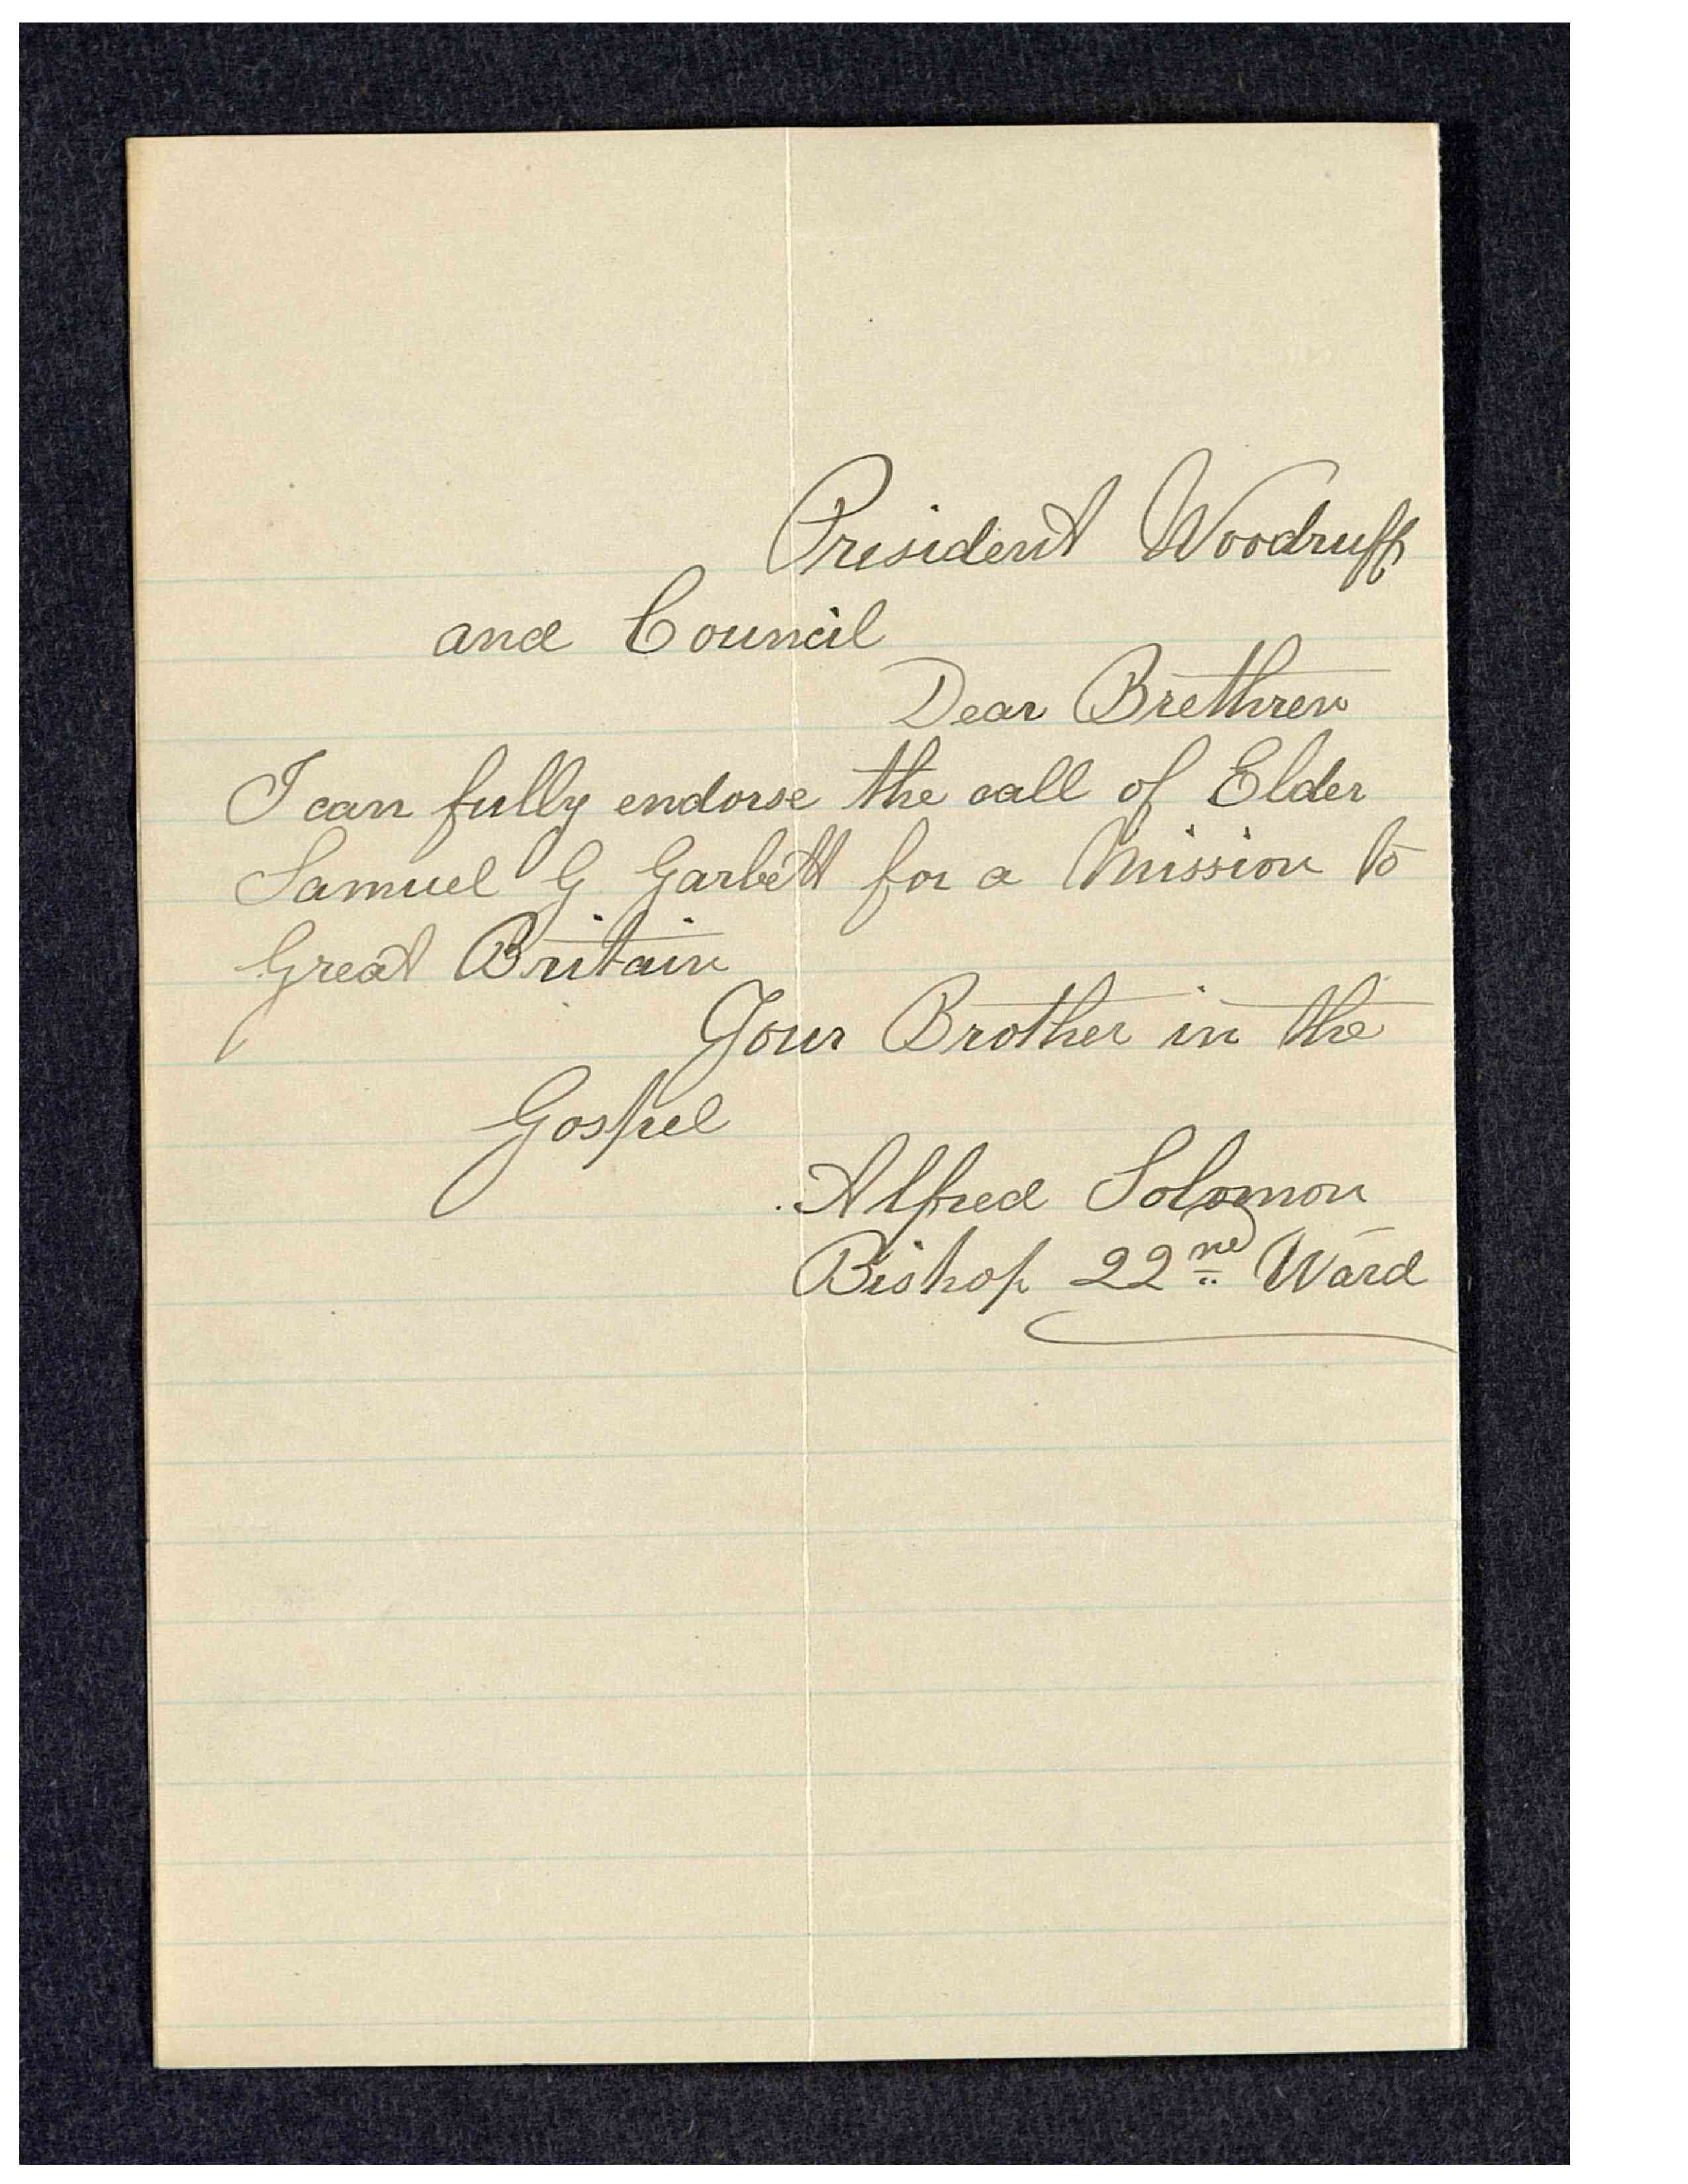 President Woodruff
and Council
Dear Brethren
I can fully endorse the call of Elder
Samuel G Garbett for a Mission to
Great Britain
Your Brother in the
Gospel
Alfred Solomon
Bishop 22nd Ward